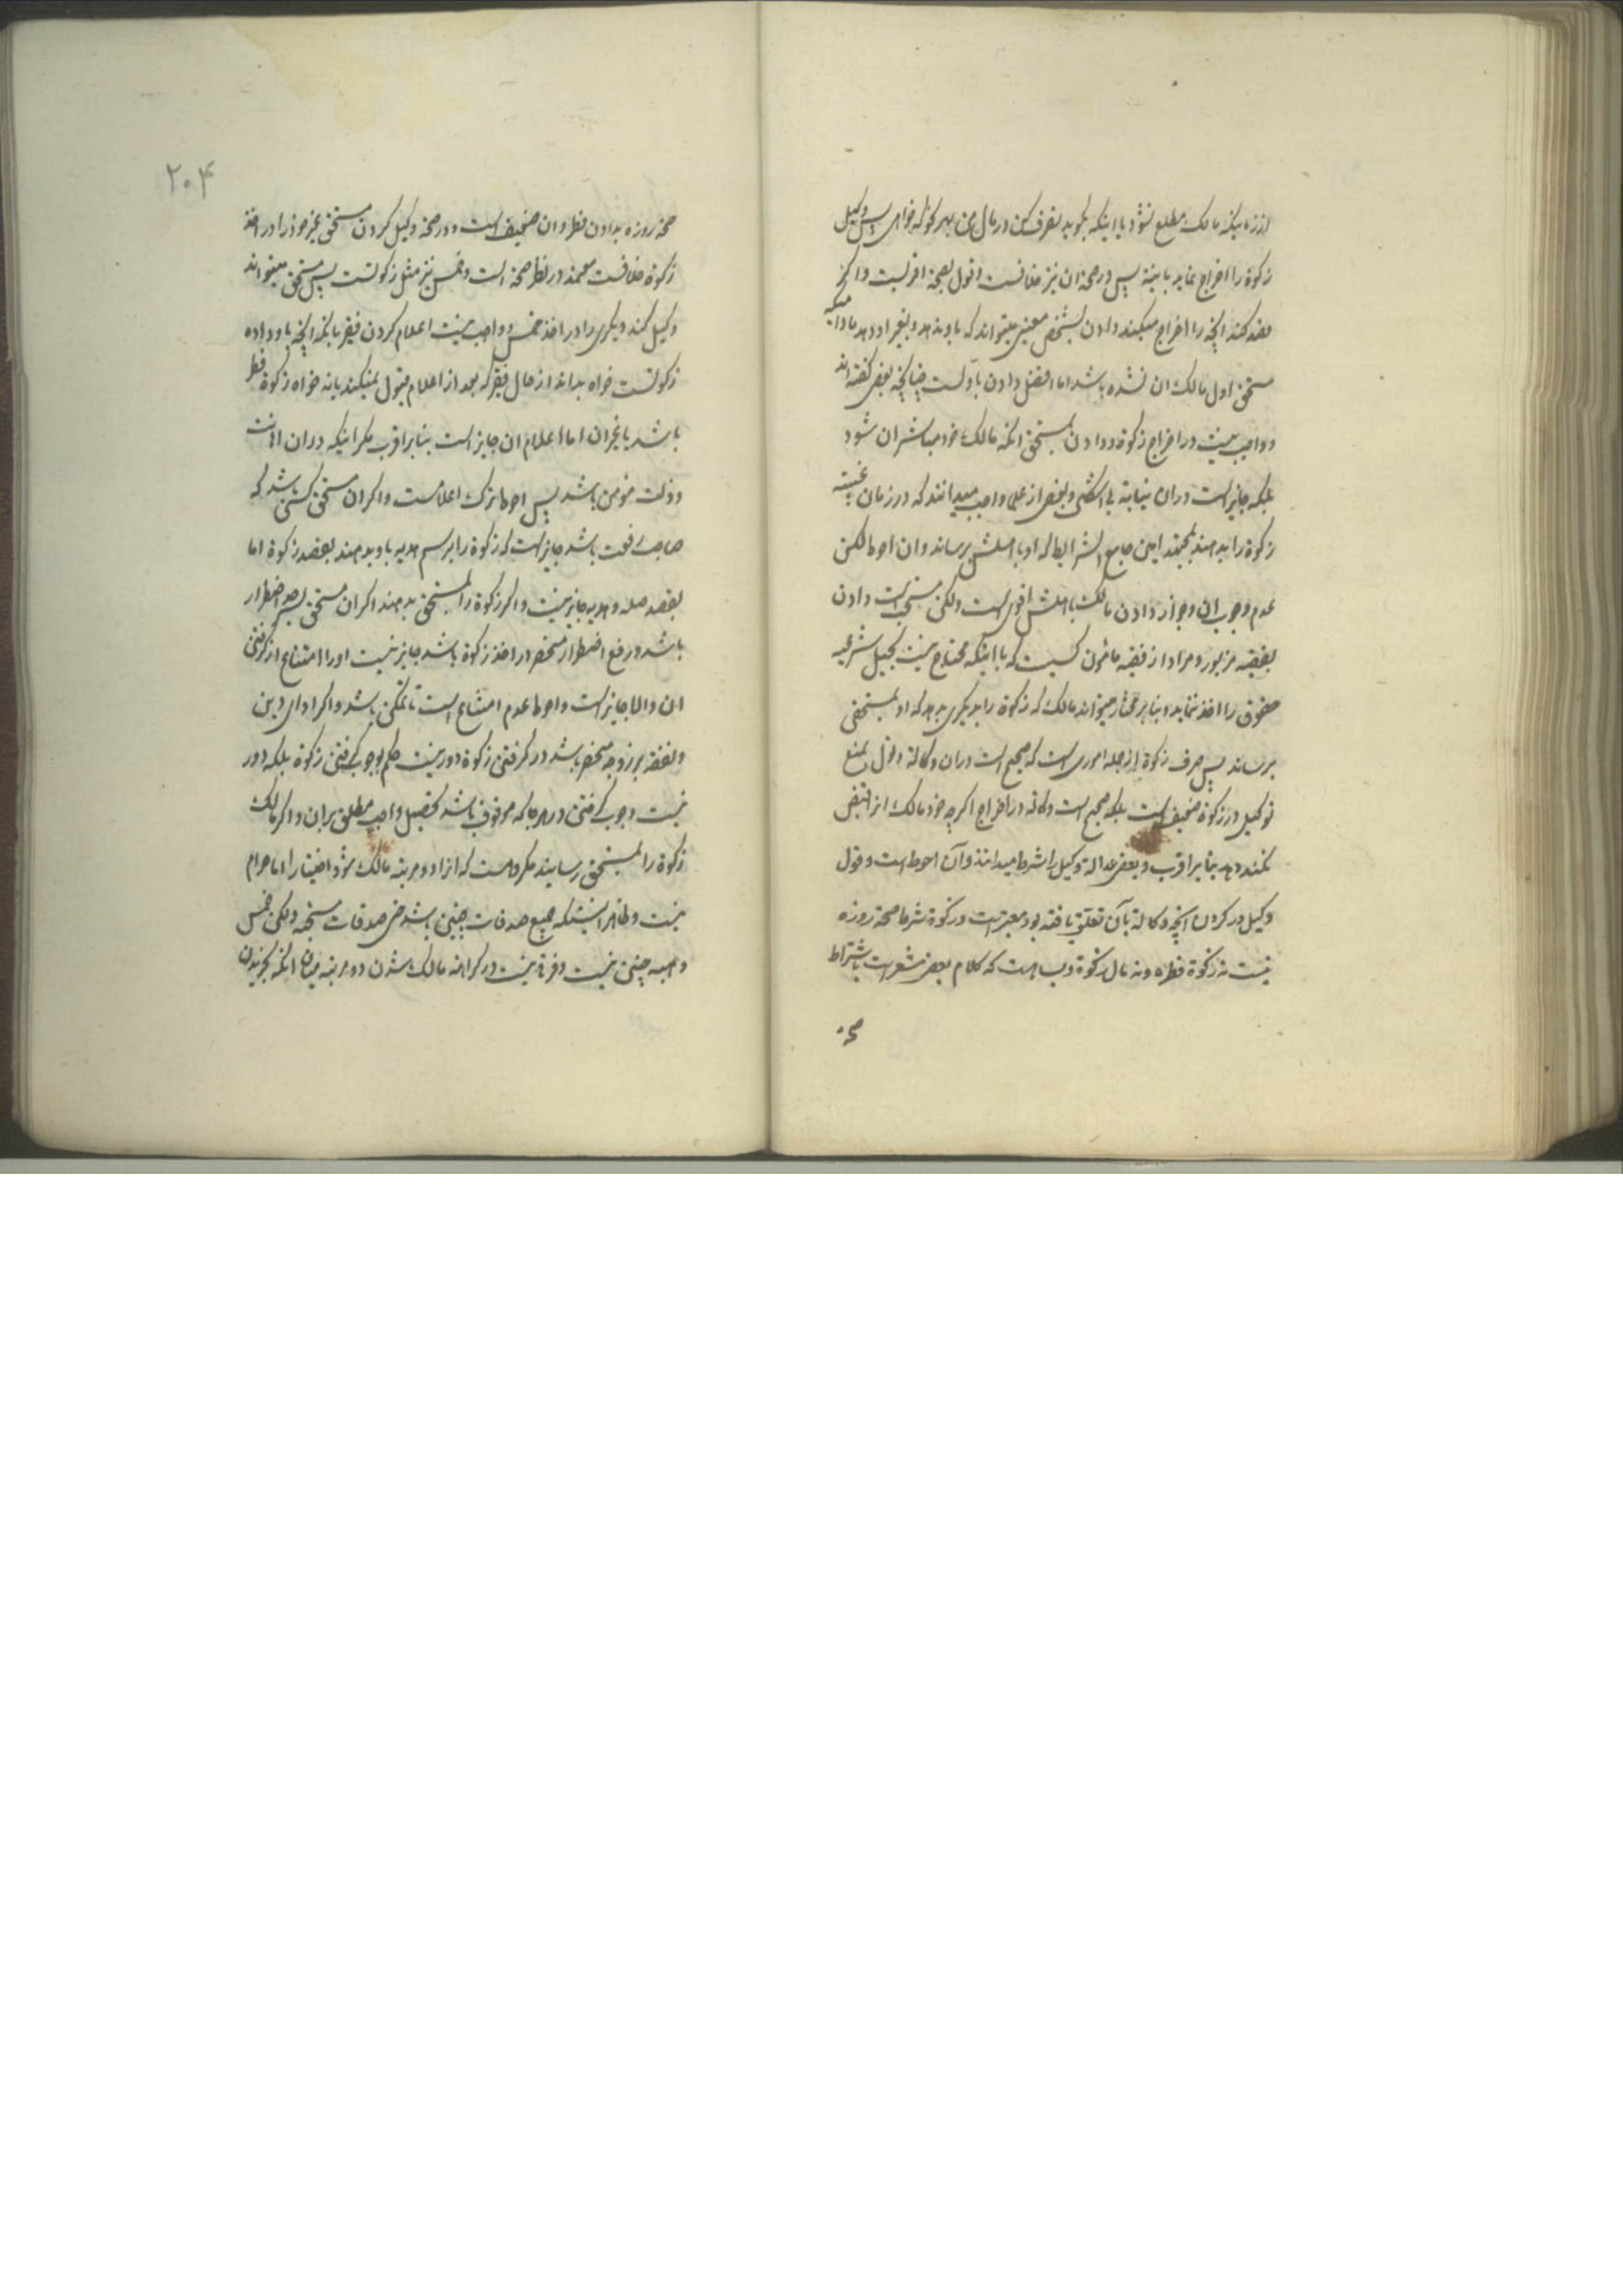 اززمانیکه مالک مطلع نشود یا اینکه بگوید تصرف کن در مال من بهر کونه که خواهی پس وکیل
زکوة را اخراج نماید با نیة پس در صحة ان نیز خلافست و قول بصحة اقویست و اکر
قصد کند انچه را اخراج میکند دادن بشخص معینی میتواند که باو ندهد و بغیر او دهد مادامیکه
مستحق اول مالک ان نشده باشد اما افضل دادن باولست چنانچه بعضی کفته اند
و واجب نیست در اخراج زکوة و دادن بمستحق انکه مالک خود مباشر ان شود
بلکه جایز است در ان نیابة بی اشکال و بعضی از علما واجب میدانند که در زمان غیبة
زکوة را بدهند بمجتهد امین جامع الشرایط که او باهلش برساند و ان احوط لکن
عدم وجوب ان و جواز دادن مالک باهلش اقوی است ولکن مستحب است دادن
بفقیه مزبور و مراد از فقیه مامون کسیست که با اینکه محتاج نیست بحیل شرعیه
حقوق را اخذ نماید و بنابر مختار میتواند مالک که زکوة را بدیکری بدهد که او بمستحق
برساند پس صرف زکوة از جمله اموری است که صحیح است در ان وکالة و قول بمنع
توکیل در زکوة ضعیف است بلکه صحیح است وکالة در اخراج اکرچه خود مالک از
نکند و بد بنابر اقرب و بعضی عدالة وکیل را شرط میدانند و آن احوط است و قول
وکیل در کردن انچه وکالة بآن تعلق یافته بود معتبر است و زکوة شرط صحة روزه
نیست نه زکوة فطره و نه مال زکوة و بسا هست که کلام بعضی مشعر است باشتراط
صحة
۲۰۴
صحة روزه بدادن فطره و ان ضعیف است و در صحة وکیل کردن مستحق غیر خود را در اخذ
زکوة خلافست معتمد در نظر صحة است و خمس نیز مثل زکوتست پس مستحق میتواند
وکیل کند دیکری را در اخذ خمس و واجب نیست اعلام کردن فقیر بانکه انچه باو داده
زکوتست خواه بداند از حال فقیر که بعد از اعلام قبول نمیکند یا نه خواه زکوة فطر
باشد یا غیر ان اما اعلام ان جایز است بنابر اقرب مکر اینکه در ان اهانت
و ذلت مؤمن باشد پس احوط ترک اعلامست و اکر ان مستحق کسی باشد که
صاحب رفعت باشد جایز است که زکوة را برسم هدیه باو بدهند بقصد زکوة اما
بقصد صله و هدیه جایز نیست و اکر زکوة را بمستحق بدهند اکر ان مستحق بسرحد اضطرار
باشد و رفع اضطرار منحصر در اخذ زکوة باشد جایز نیست او را امتناع از کرفتن
ان والا جایز است و احوط عدم امتناع است تا ممکن باشد و اکر ادای دین
و نفقه بر زوجه منحصر باشد در کرفتن زکوة دور نیست حکم بوجوب کرفتن زکوة بلکه دور
نیست وجوب کرفتن در هر جا که موقوف باشد تحصیل واجب مطلق بران و اکر مالک
زکوة را بمستحق رسانید مکروهست که انرا دو مرتبه مالک شود اختیارا اما حرام
نیست و ظاهر اینستکه جمیع صدقات چنین باشد حتی صدقات مستحبه ولکن خمس
و هبه چنین نیست و فرق نیست در کراهة مالک شدن دو مرتبه میان انکه بخریدن